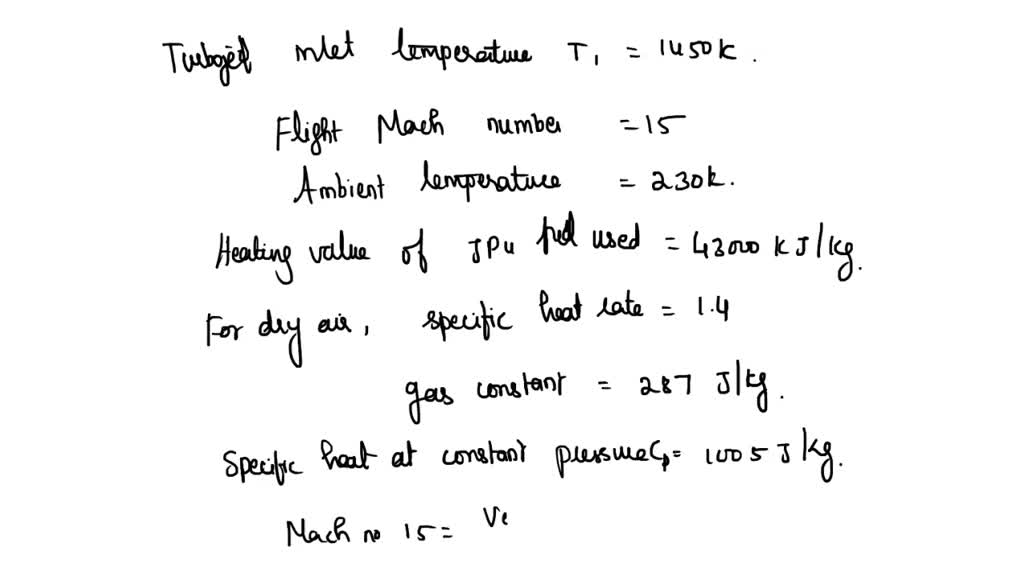 Turbojet inlet temperature T1 = 1450K.
Flight Mach number = 15
Ambient temperature = 230k.
Heating value of JPu fuel used = 43000 KJ/kg.
For dry air, specific heat rate = 1.4
gas constant = 287 J/kg.
Specific heat at constant pressure Cp = 1005 J/kg.
Mach no 15 =